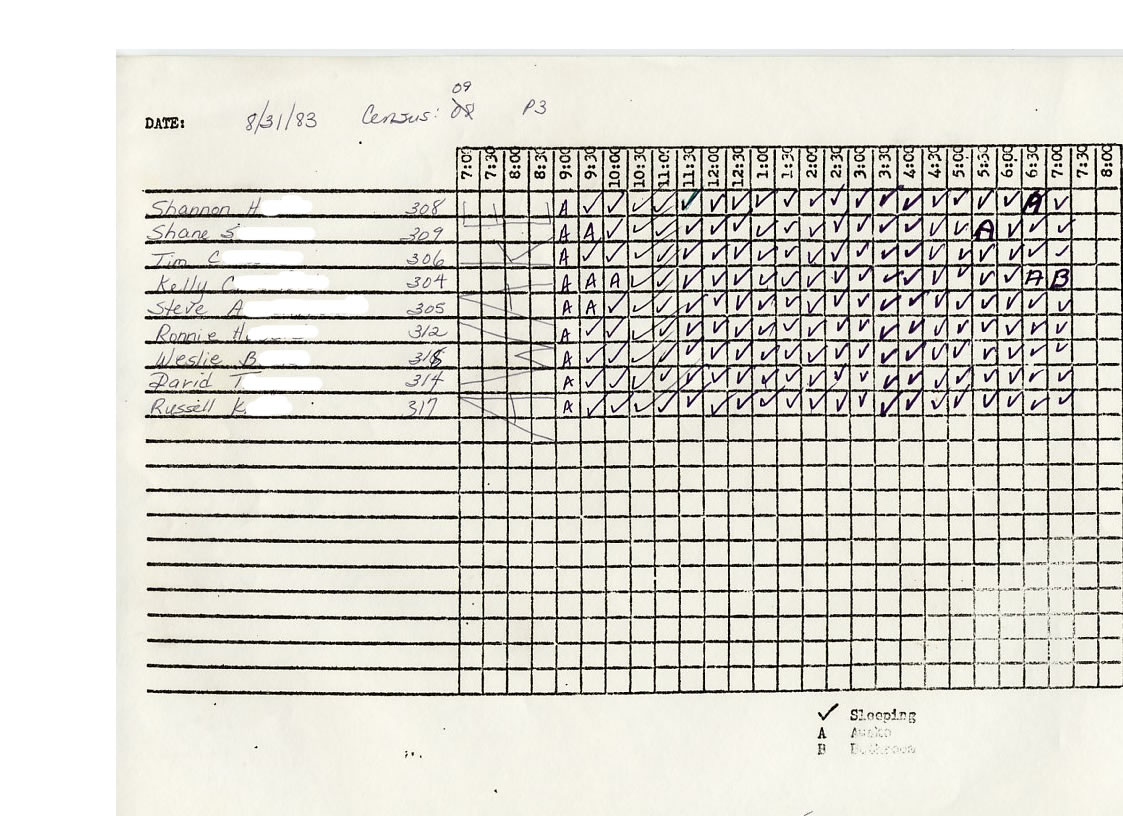 09
DATE: 8/31/83 Census: 08 P3
7:00 7:30 8:00 8:30 9:00 9:30 10:00 10:30 11:00 11:30 12:00 12:30 1:00 1:30 2:00 2:30 3:00 3:30 4:00 4:30 5:00 5:30 6:00 6:30 7:00 7:30 8:00
Shannon H 308 A ✓ ✓ ✓ ✓ ✓ ✓ ✓ ✓ ✓ ✓ ✓ ✓ ✓ ✓ ✓ ✓ ✓ ✓ A ✓
Shane S. 309 A A ✓ ✓ ✓ ✓ ✓ ✓ ✓ ✓ ✓ ✓ ✓ ✓ ✓ ✓ ✓ A ✓ ✓ ✓
Tim C 306 A ✓ ✓ ✓ ✓ ✓ ✓ ✓ ✓ ✓ ✓ ✓ ✓ ✓ ✓ ✓ ✓ ✓ ✓ ✓ ✓
Kelly C. 304 A A A ✓ ✓ ✓ ✓ ✓ ✓ ✓ ✓ ✓ ✓ ✓ ✓ ✓ ✓ ✓ ✓ A B
Steve A 305 A A ✓ ✓ ✓ ✓ ✓ ✓ ✓ ✓ ✓ ✓ ✓ ✓ ✓ ✓ ✓ ✓ ✓ ✓ ✓
Ronnie H. 312 A ✓ ✓ ✓ ✓ ✓ ✓ ✓ ✓ ✓ ✓ ✓ ✓ ✓ ✓ ✓ ✓ ✓ ✓ ✓ ✓
Weslie B A ✓ ✓ ✓ ✓ ✓ ✓ ✓ ✓ ✓ ✓ ✓ ✓ ✓ ✓ ✓ ✓ ✓ ✓ ✓ ✓
David T. 314 A ✓ ✓ ✓ ✓ ✓ ✓ ✓ ✓ ✓ ✓ ✓ ✓ ✓ ✓ ✓ ✓ ✓ ✓ ✓ ✓
Russell K. 317 A ✓ ✓ ✓ ✓ ✓ ✓ ✓ ✓ ✓ ✓ ✓ ✓ ✓ ✓ ✓ ✓ ✓ ✓ ✓ ✓
✓ Sleeping
A Awake
B Bathroom